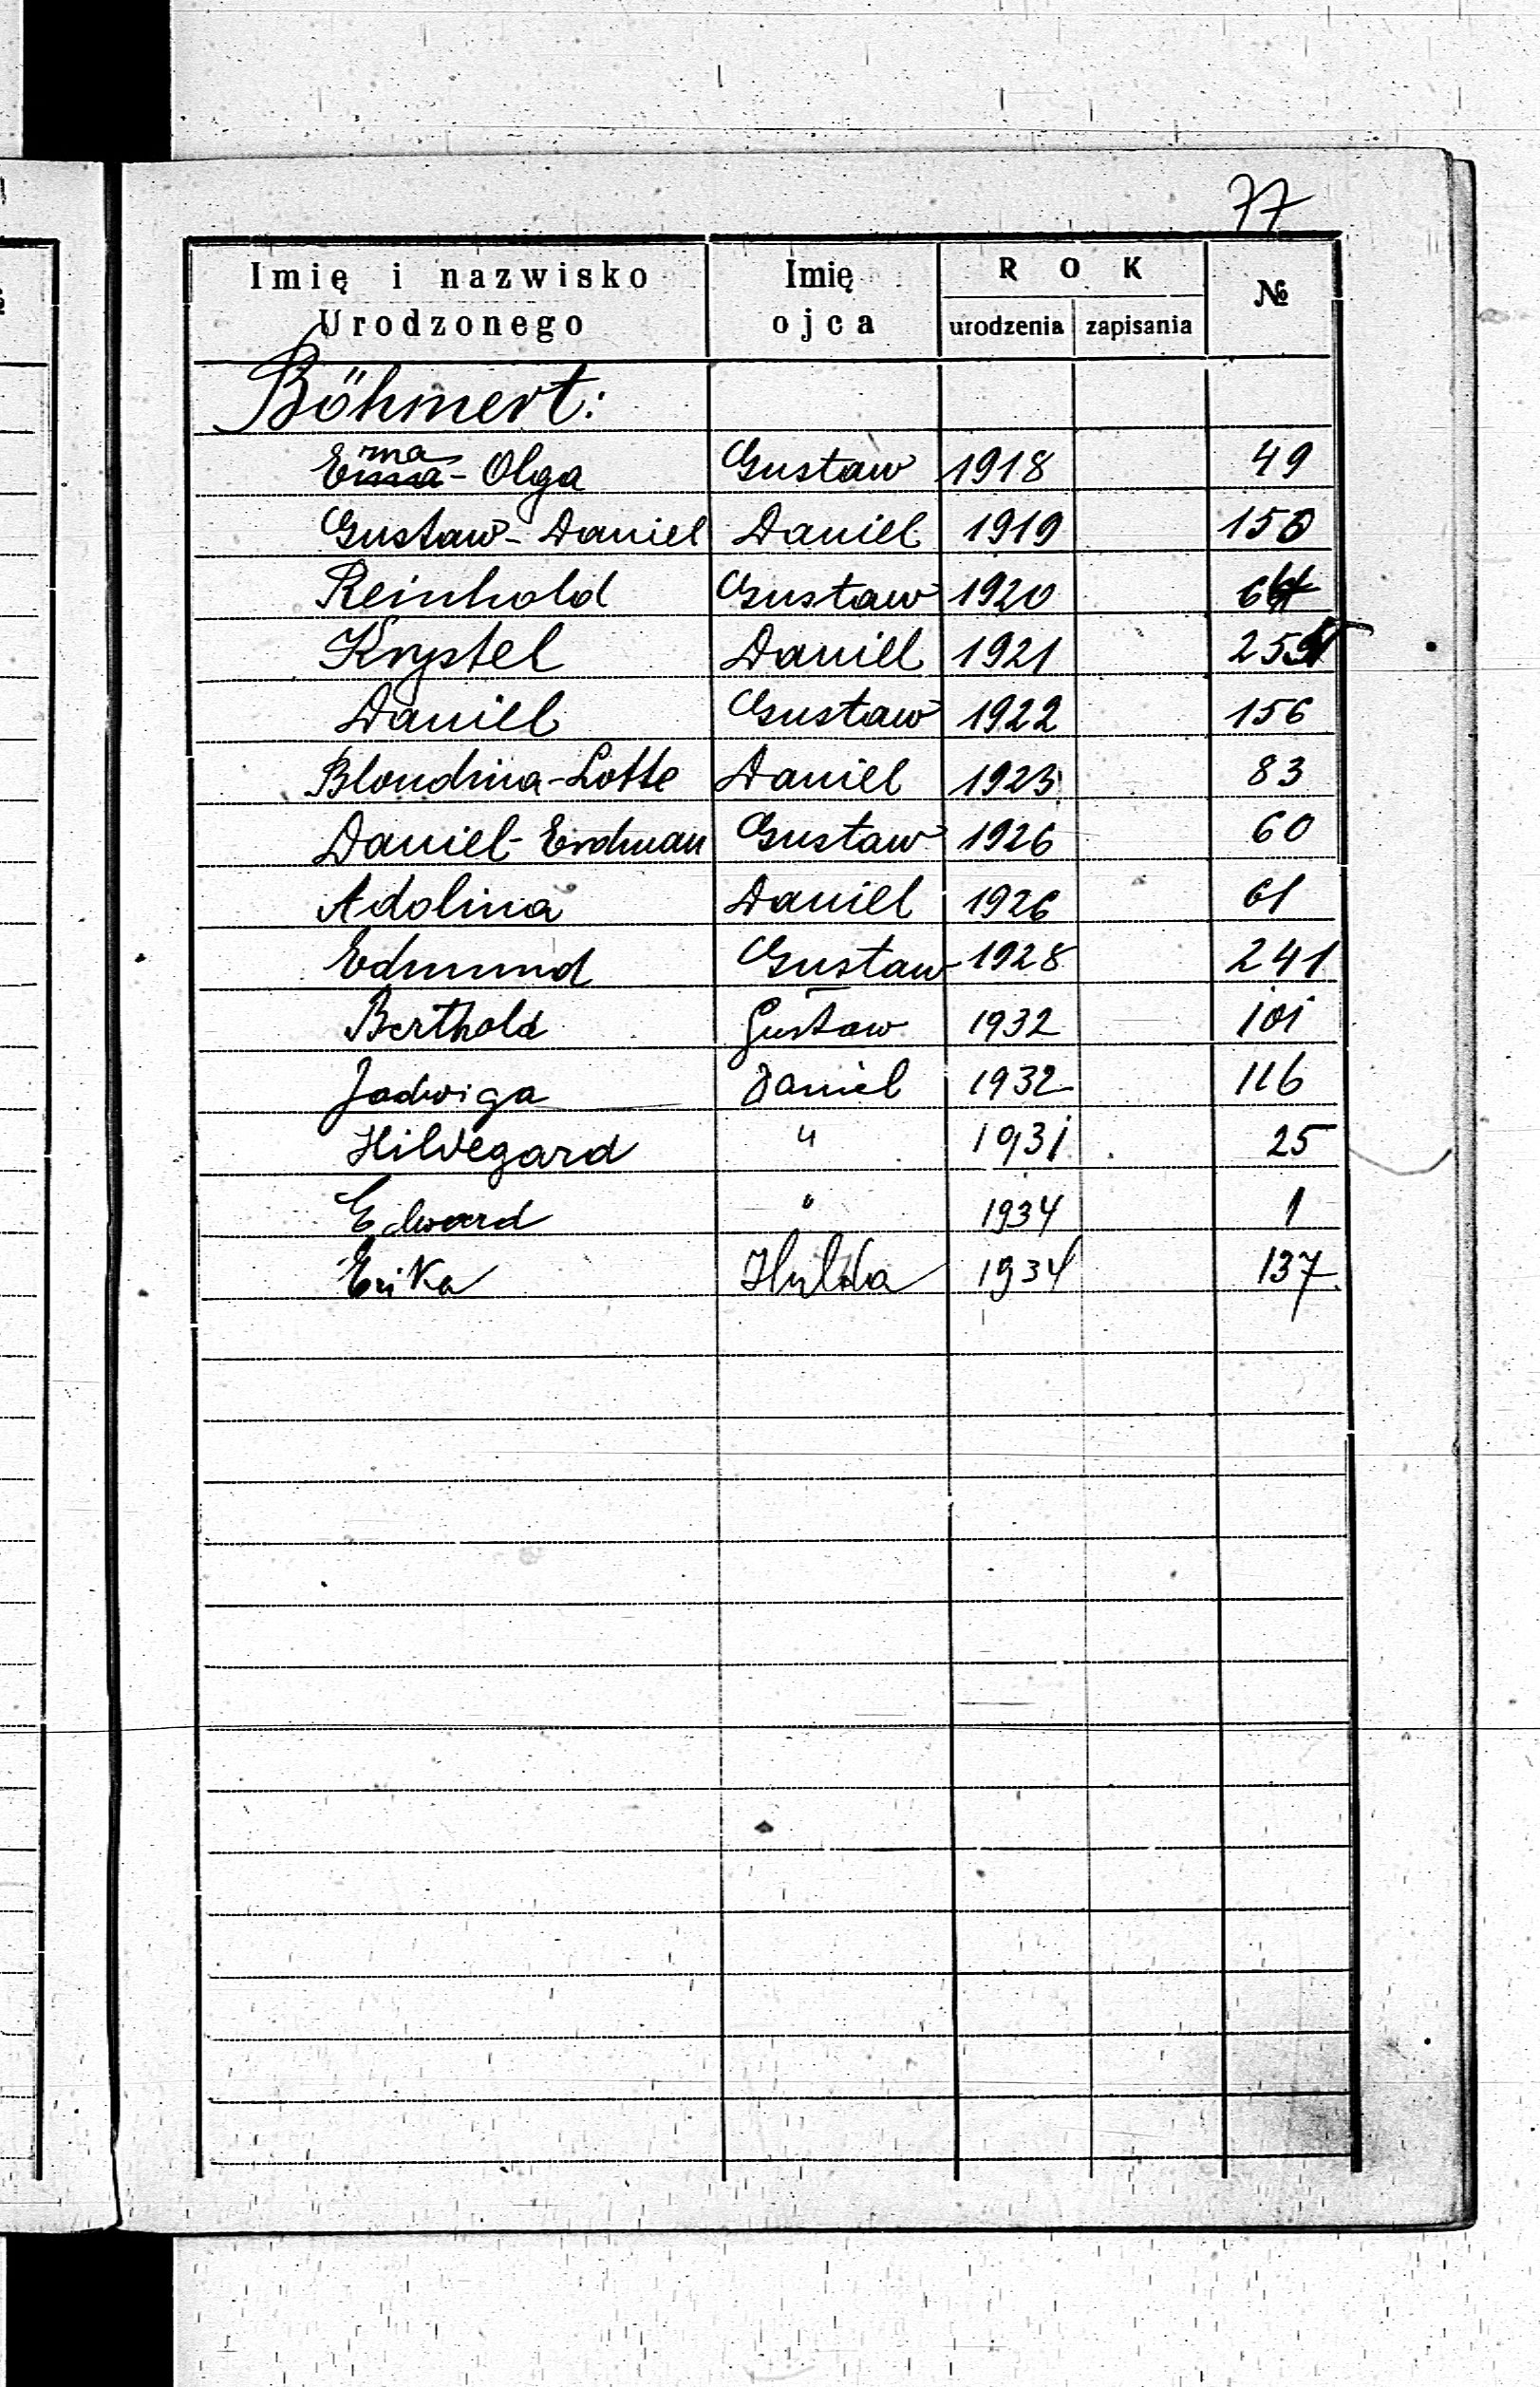 77
Imię i nazwisko Urodzonego Imię ojca ROK urodzenia zapisania №
Böhmert:
Erna - Olga Gustaw 1918 49
Gustaw - Daniel Daniel 1919 150
Reinhold Gustaw 1920
Krystel Daniel 1921
Daniel Gustaw 1922 156
Blondina - Lotte Daniel 1923 83
Daniel - Erdman Gustaw 1926 60
Adolina Daniel 1926 61
Edmund Gustaw 1928 241
Berthold Gustaw 1932 101
Jadwiga Daniel 1932 116
Hildegard " 1931 25
Edward " 1934 1
Erika Hulda 1934 137